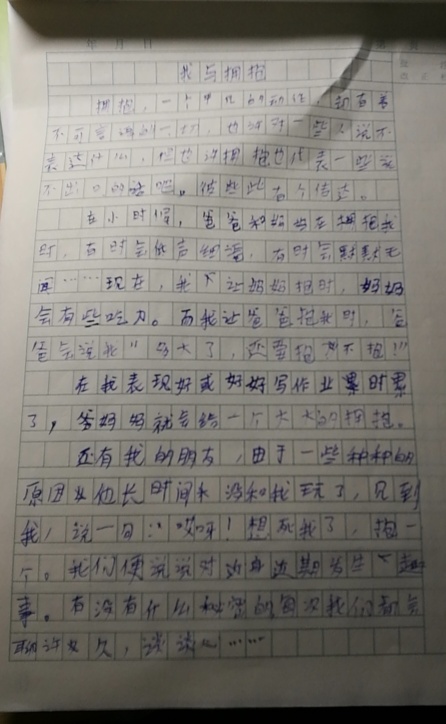 年 月 日
我与拥抱
拥抱，一个平凡的动作，却有着
不可言语的一切，也许对一些人说不
表达什么，但也许拥抱也代表一些说
不出口的话吧。
在小时候，爸爸和妈妈在拥抱我
时，有时会低声细语，有时会默默无
闻……现在，我让妈妈抱时，妈妈
会有些吃力。而我让爸爸抱我时，爸
爸会说我"多大了，还要抱，不抱!!!
在我表现好或好好写作业累时累
了，爸妈妈就会给一个大大的拥抱。
还有我的朋友，由于一些种种的
原因从他长时间未没和我玩了，见到
我，说一句："哎呀！想死我了，抱一
个。我们便说说对近期发生趣
事。有没有什么秘密的每次我们都会
聊许久，谈谈……